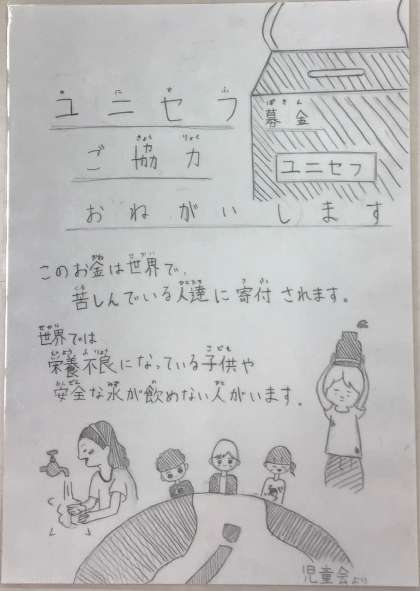 ユニセフ
ご協力
おねがいします
募金
ユニセフ
このお金は世界で、
苦しんでいる人達に寄付されます。
世界では
栄養不良になっている子供や
安全な水が飲めない人がいます。
児童会より